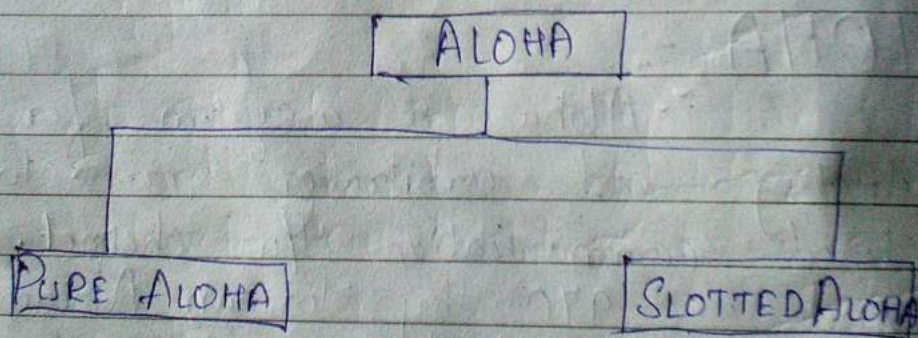 ALOHA
PURE ALOHA
SLOTTED ALOHA